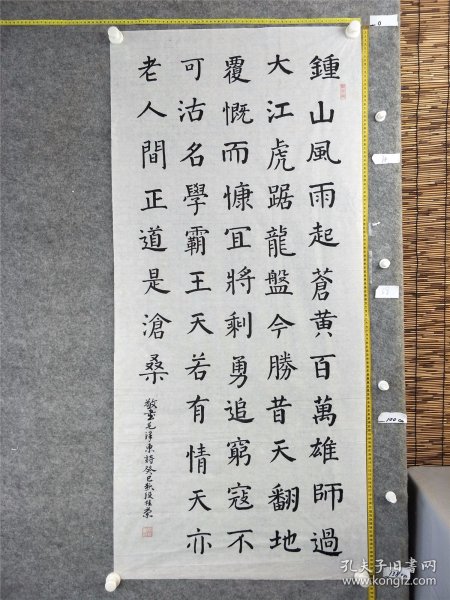 鍾山風雨起蒼黃百萬雄師過
大江虎踞龍盤今勝昔天翻地
覆慨而慷宜將剩勇追窮寇不
可沽名學霸王天若有情天亦
老人間正道是滄桑
敬書毛澤東詩癸巳秋段
孔夫子旧书网
kongfz.com